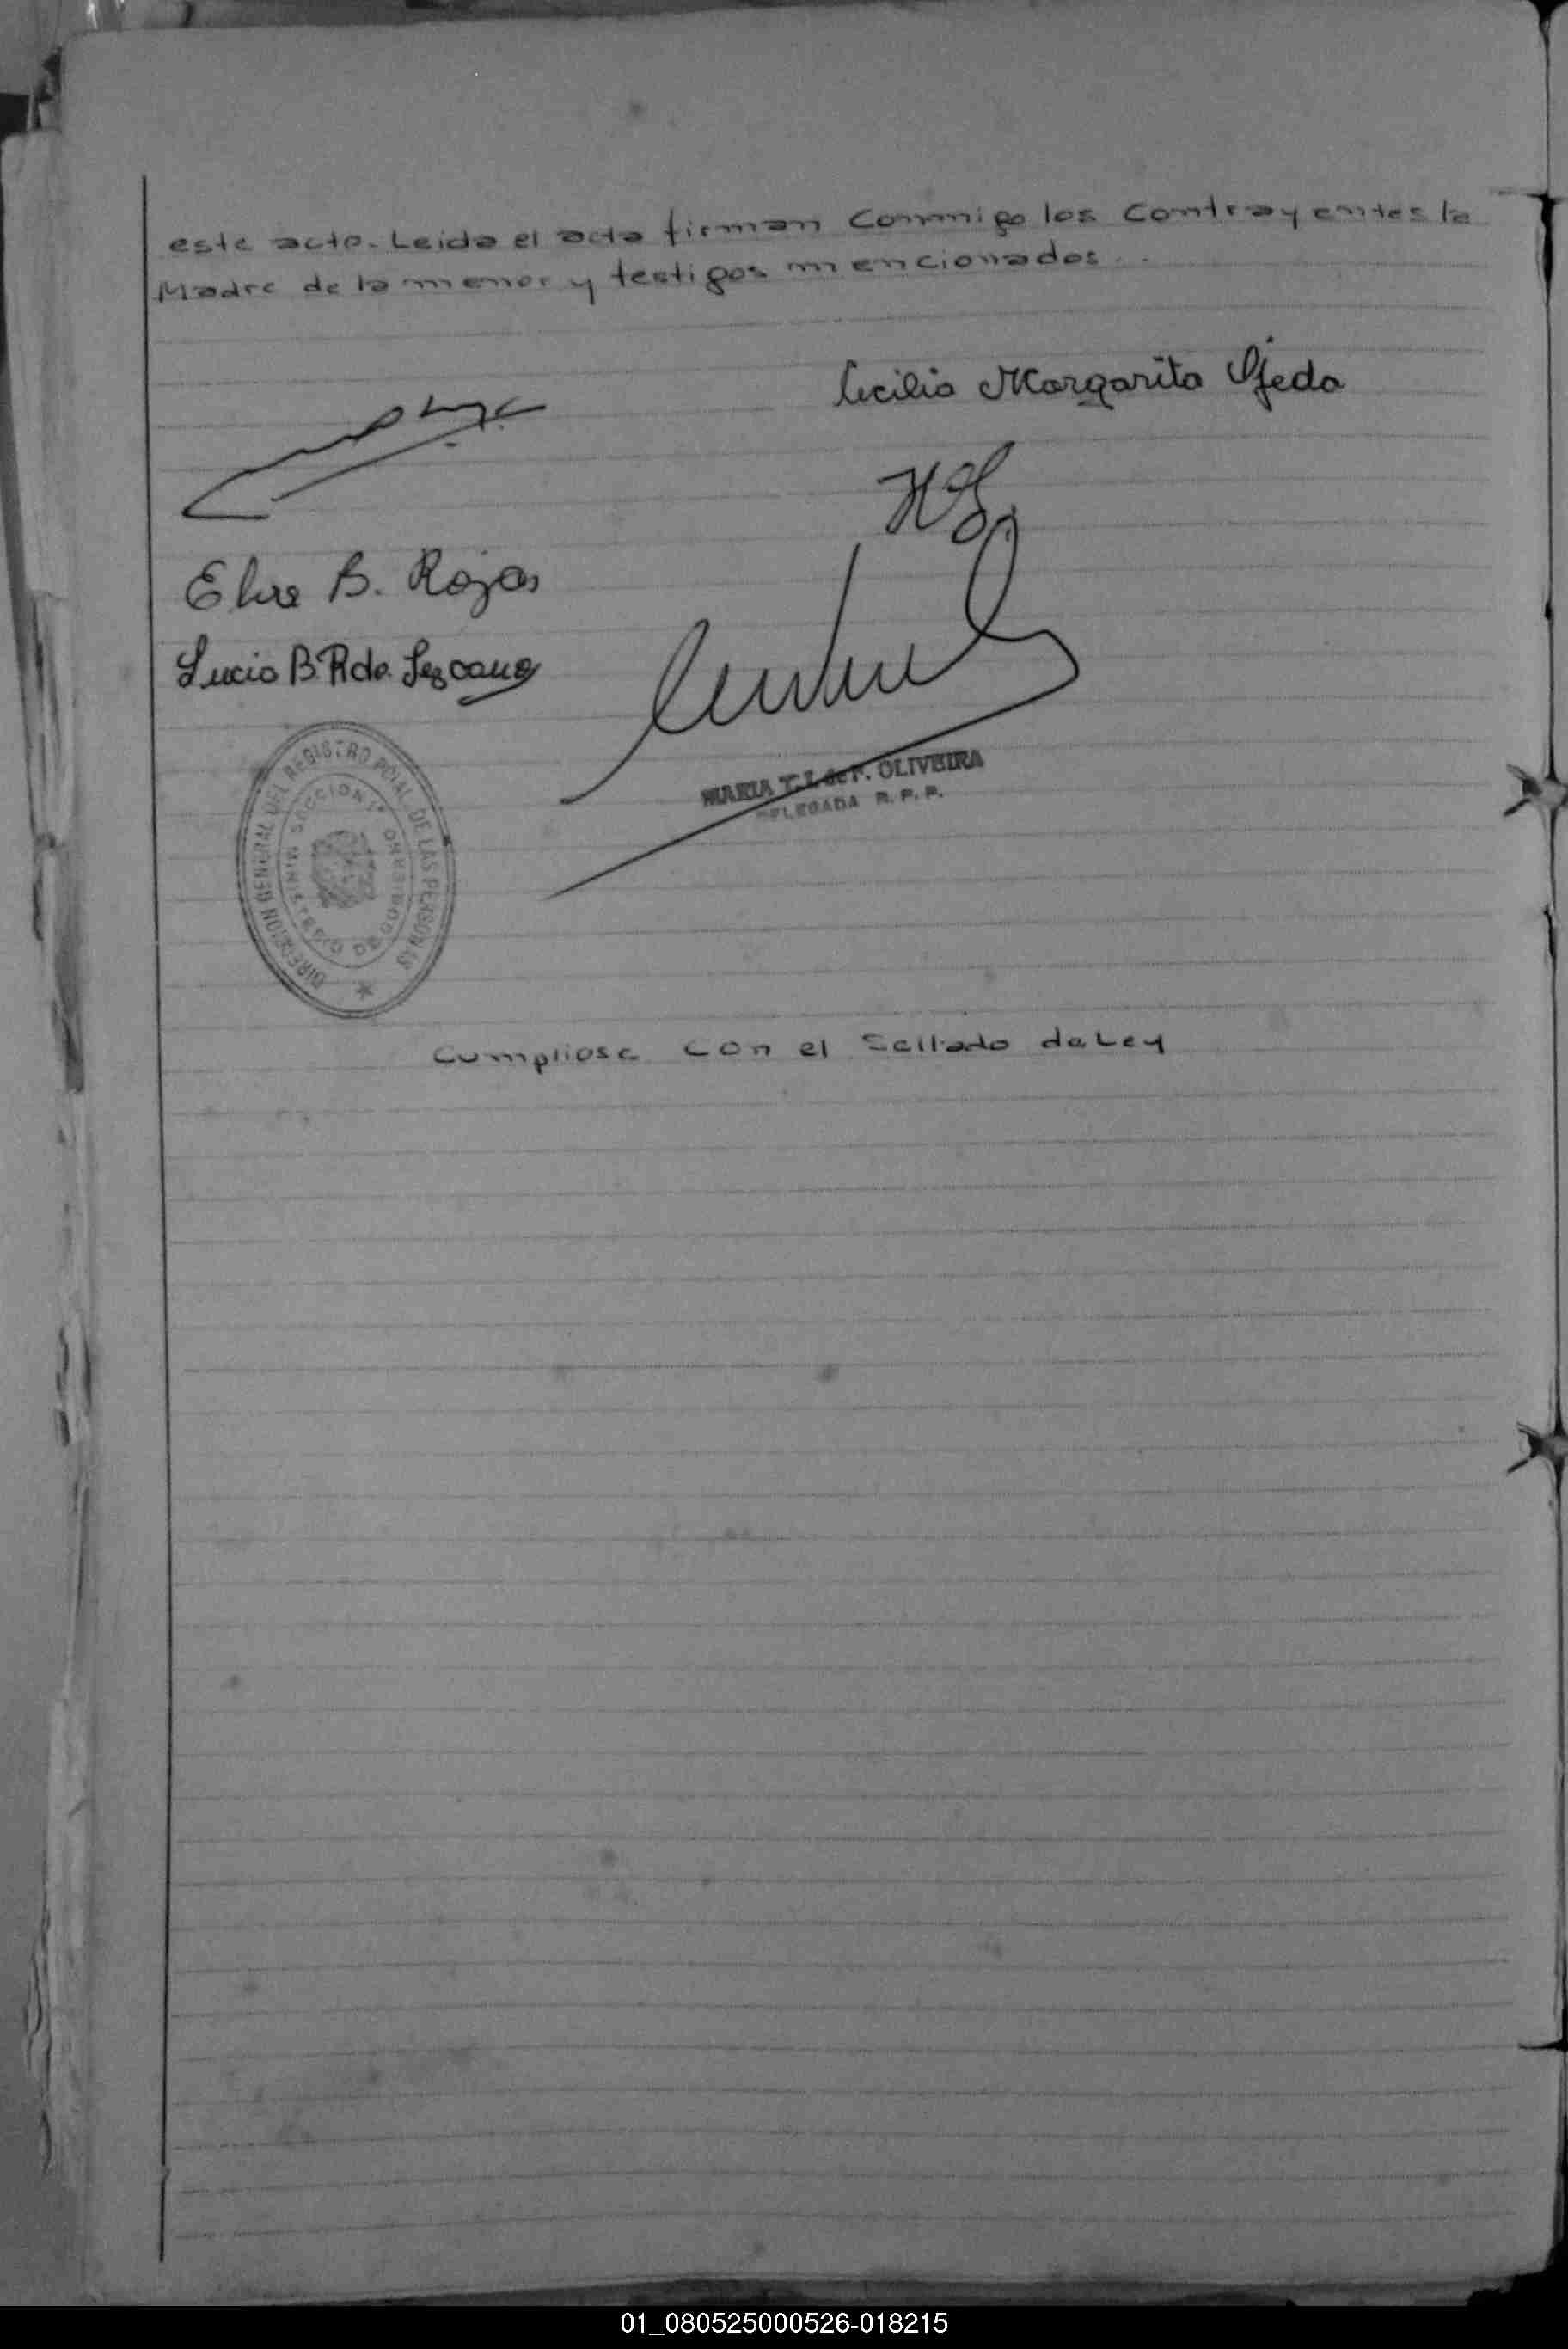 este acto. Leida el acta firman Conmigo los Contrayentes la
Madre de la menor y testigos mencionados . .
Cecilia Margarita Ojeda
H
B. Rojas
Lucio B. Rdo. Lezcano
MARIA T. I. de F. OLIVEIRA
DELEGADA R. P. P.
DIRECCION GENERAL DEL REGISTRO PCIAL. DE LAS PERSONAS
MINISTERIO DE GOBIERNO
SECCION 1ª
Cumpliose Con el Sellado de Ley
01_080525000526-018215